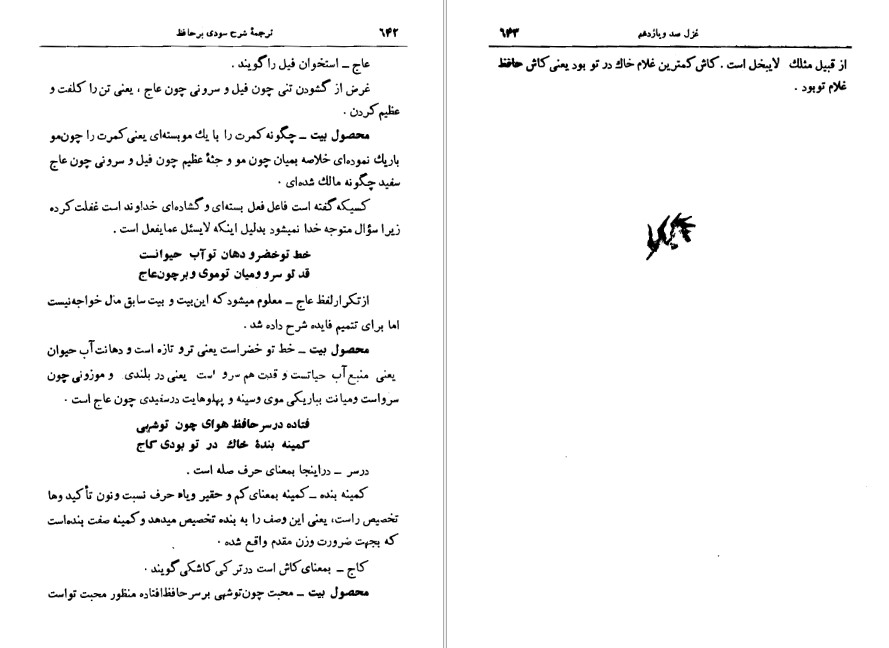 ترجمهٔ شرح سودی بر حافظ ۶۴۲
عاج ــ استخوان فیل را گویند .
غرض از گشودن تنی چون فیل و سرونی چون عاج ، یعنی تن را کلفت و
عظیم کردن .
محصول بیت ــ چگونه کمرت را با یك مو بسته‌ای یعنی کمرت را چون‌مو
باریك نموده‌ای خلاصه بمیان چون مو و جثهٔ عظیم چون فیل و سرونی چون عاج
سفید چگونه مالك شده‌ای .
کسیکه گفته است فاعل فعل بسته‌ای و گشاده‌ای خداوند است غفلت کرده
زیرا سؤال متوجه خدا نمیشود بدلیل اینکه لایسئل عمایفعل است .
خط تو خضر و دهان تو آب حیوانست
قد تو سرو و میان تو موی و بر چون عاج
از تکرار لفظ عاج ــ معلوم میشود که این بیت و بیت سابق مال خواجه نیست
اما برای تتمیم فایده شرح داده شد .
محصول بیت ــ خط تو خضر است یعنی تر و تازه است و دهانت آب حیوان
یعنی منبع آب حیاتست و قدت هم سرو است یعنی در بلندی و موزونی چون
سرو است و میانت بباریکی موی و سینه و پهلوهایت در سفیدی چون عاج است .
فتاده در سر حافظ هوای چون تو شهی
کمینه بندهٔ خاك در تو بودی کاج
در سر ــ در اینجا بمعنای حرف صله است .
کمینه بنده ــ کمینه بمعنای کم و حقیر و یاء حرف نسبت و نون تأکید و ها
تخصیص راست، یعنی این وصف را به بنده تخصیص میدهد و کمینه صفت بنده است
که بجهت ضرورت وزن مقدم واقع شده .
کاج ــ بمعنای کاش است در ترکی کاشکی گویند .
محصول بیت ــ محبت چون تو شهی بر سر حافظ افتاده منظور محبت تو است
غزل صد و یازدهم ۶۴۳
از قبیل مثلك لایبخل است . کاش کمترین غلام خاك در تو بود یعنی کاش حافظ
غلام تو بود .